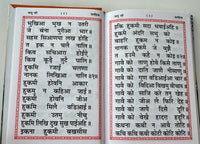 जपु जी साहिब
भुखिआ भुख न उतरी
जे बंना पुरीआ भार
सहस सिआणपा लख होहि
त इक न चलै नालि
किव सचिआरा होईऐ
किव कूड़ै तुटै पालि
हुकमि रजाई चलणा
नानक लिखिआ नालि
हुकमी होवनि आकार
हुकमु न कहिआ जाई
हुकमी होवनि जीअ
हुकमि मिलै वडिआई
हुकमी उतमु नीचु
हुकमि लिखि दुख सुख पाईअहि
इकना हुकमी बखसीस
जपु जी साहिब
इकि हुकमी सदा भवाईअहि
हुकमै अंदरि सभु को
बाहरि हुकम न कोइ
नानक हुकमै जे बुझै
त हउमै कहै न कोइ
गावै को ताणु होवै किसै ताणु
गावै को दाति जाणै नीसाणु
गावै को गुण वडिआईआ चार
गावै को विदिआ विखमु वीचारु
गावै को साजि करे तनु खेह
गावै को जीअ लै फिरि देह
गावै को जापै दिसै दूरि
गावै को वेखै हादरा हदूरि
कथना कथी न आवै तोटि
कथि कथि कथी कोटी कोटि कोटि